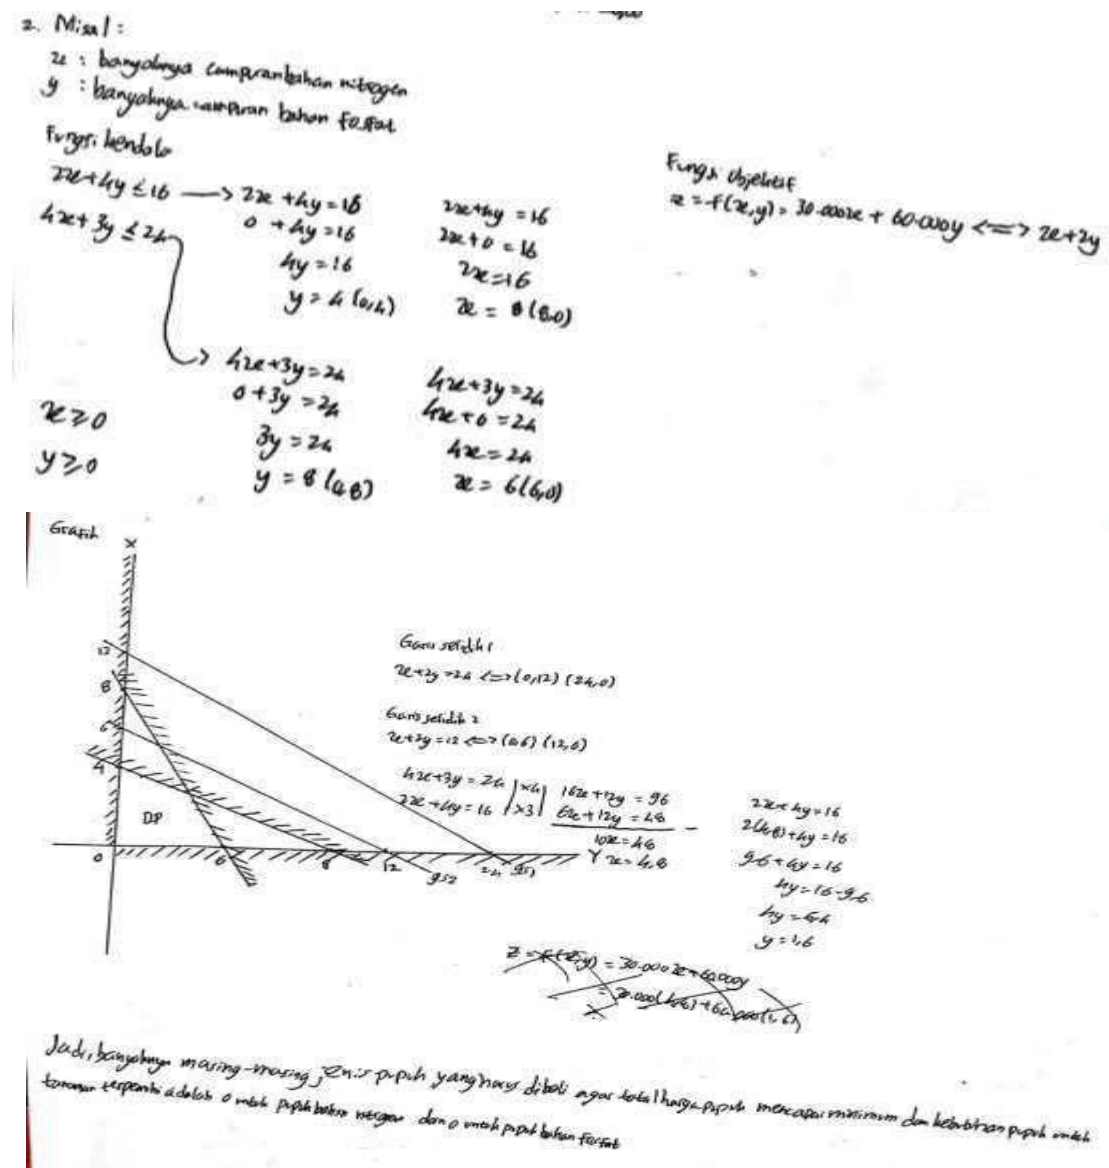 2. Misal :
x : banyaknya campuran bahan nitrogen
y : banyaknya campuran bahan fosfat
Fungsi kendala
2x+4y ≤ 16 → 2x + 4y = 16
0 + 4y = 16
4y = 16
y = 4 (0,4)
2x+4y = 16
2x+0 = 16
2x=16
x = 8 (8,0)
4x+3y ≤ 24 → 4x+3y = 24
0+3y = 24
3y = 24
y = 8 (0,8)
4x+3y = 24
4x+0 = 24
4x = 24
x = 6 (6,0)
x ≥ 0
y ≥ 0
Fungsi objektif
z = f(x,y) = 30.000x + 60.000y <=> x+2y
Grafik
X
12
8
6
4
DP
0 6 8 12 24 Y
gs2 gs1
Garis selidik 1
x+2y = 24 <=> (0,12) (24,0)
Garis selidik 2
x+2y = 12 <=> (0,6) (12,0)
4x+3y = 24 | x4 | 16x + 12y = 96
2x + 4y = 16 | x3 | 6x + 12y = 48 -
10x = 48
x = 4,8
2x + 4y = 16
2(4,8) + 4y = 16
9,6 + 4y = 16
4y = 16 - 9,6
4y = 6,4
y = 1,6
z = f(x,y) = 30.000x + 60.000y
= 30.000(4,8) + 60.000(1,6)
Jadi, banyaknya masing-masing jenis pupuk yang harus dibeli agar total harga pupuk mencapai minimum dan kebutuhan pupuk untuk
tanaman terpenuhi adalah 0 untuk pupuk bahan nitrogen dan 0 untuk pupuk bahan fosfat